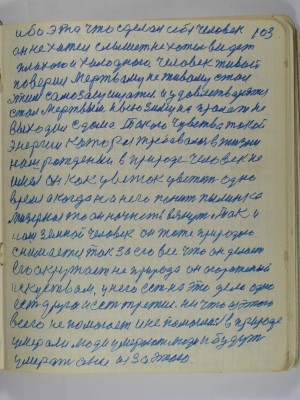 ибо эта что сделал себе человек 103
он не хотел слышит не хотел видет
плохого и холодного человек живой
поверил мертвому не живому стал
этим самозащищатся и удовлетворятся
стал мертвым
выходил с дома Такого чувства такой
энергии которой требовалось в жизни
нем рождения в природе человек не
имел он как цветок цветет одно
время а когда на него попит пылинка
мизерная то он начнет вянут Так и
сам земной человек он тоже природою
снимается так за его все что он делает
Его окружает не природа он огороженый
искуством, у него есть на это дело одно
есть другое и есть третие. Ни что из этого
всего не помогает и не помогало в природе
умерали люди умерают люди и будут
умерат они из за этого.